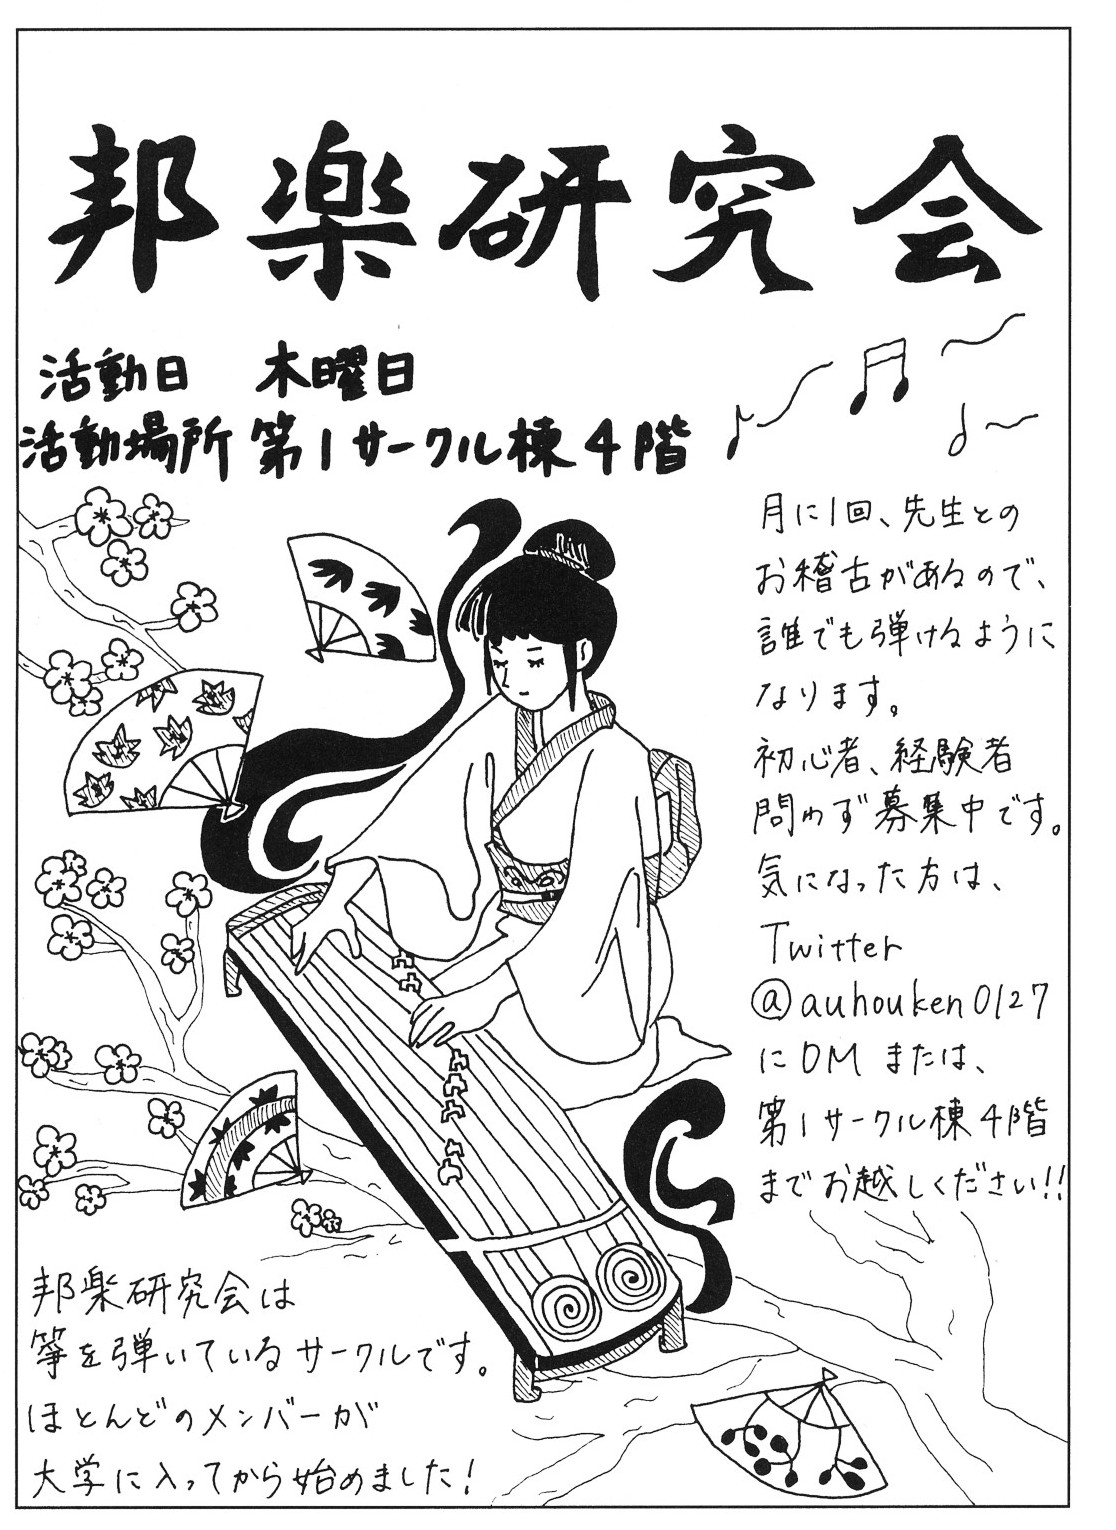 邦楽研究会
活動日　木曜日
活動場所 第1サークル棟4階
月に1回、先生との
お稽古があるので、
誰でも弾けるように
なります。
初心者、経験者
問わず募集中です。
気になった方は、
Twitter
@auhouken0127
にDMまたは、
第1サークル棟4階
までお越しください!!
邦楽研究会は
箏を弾いているサークルです。
ほとんどのメンバーが
大学に入ってから始めました!